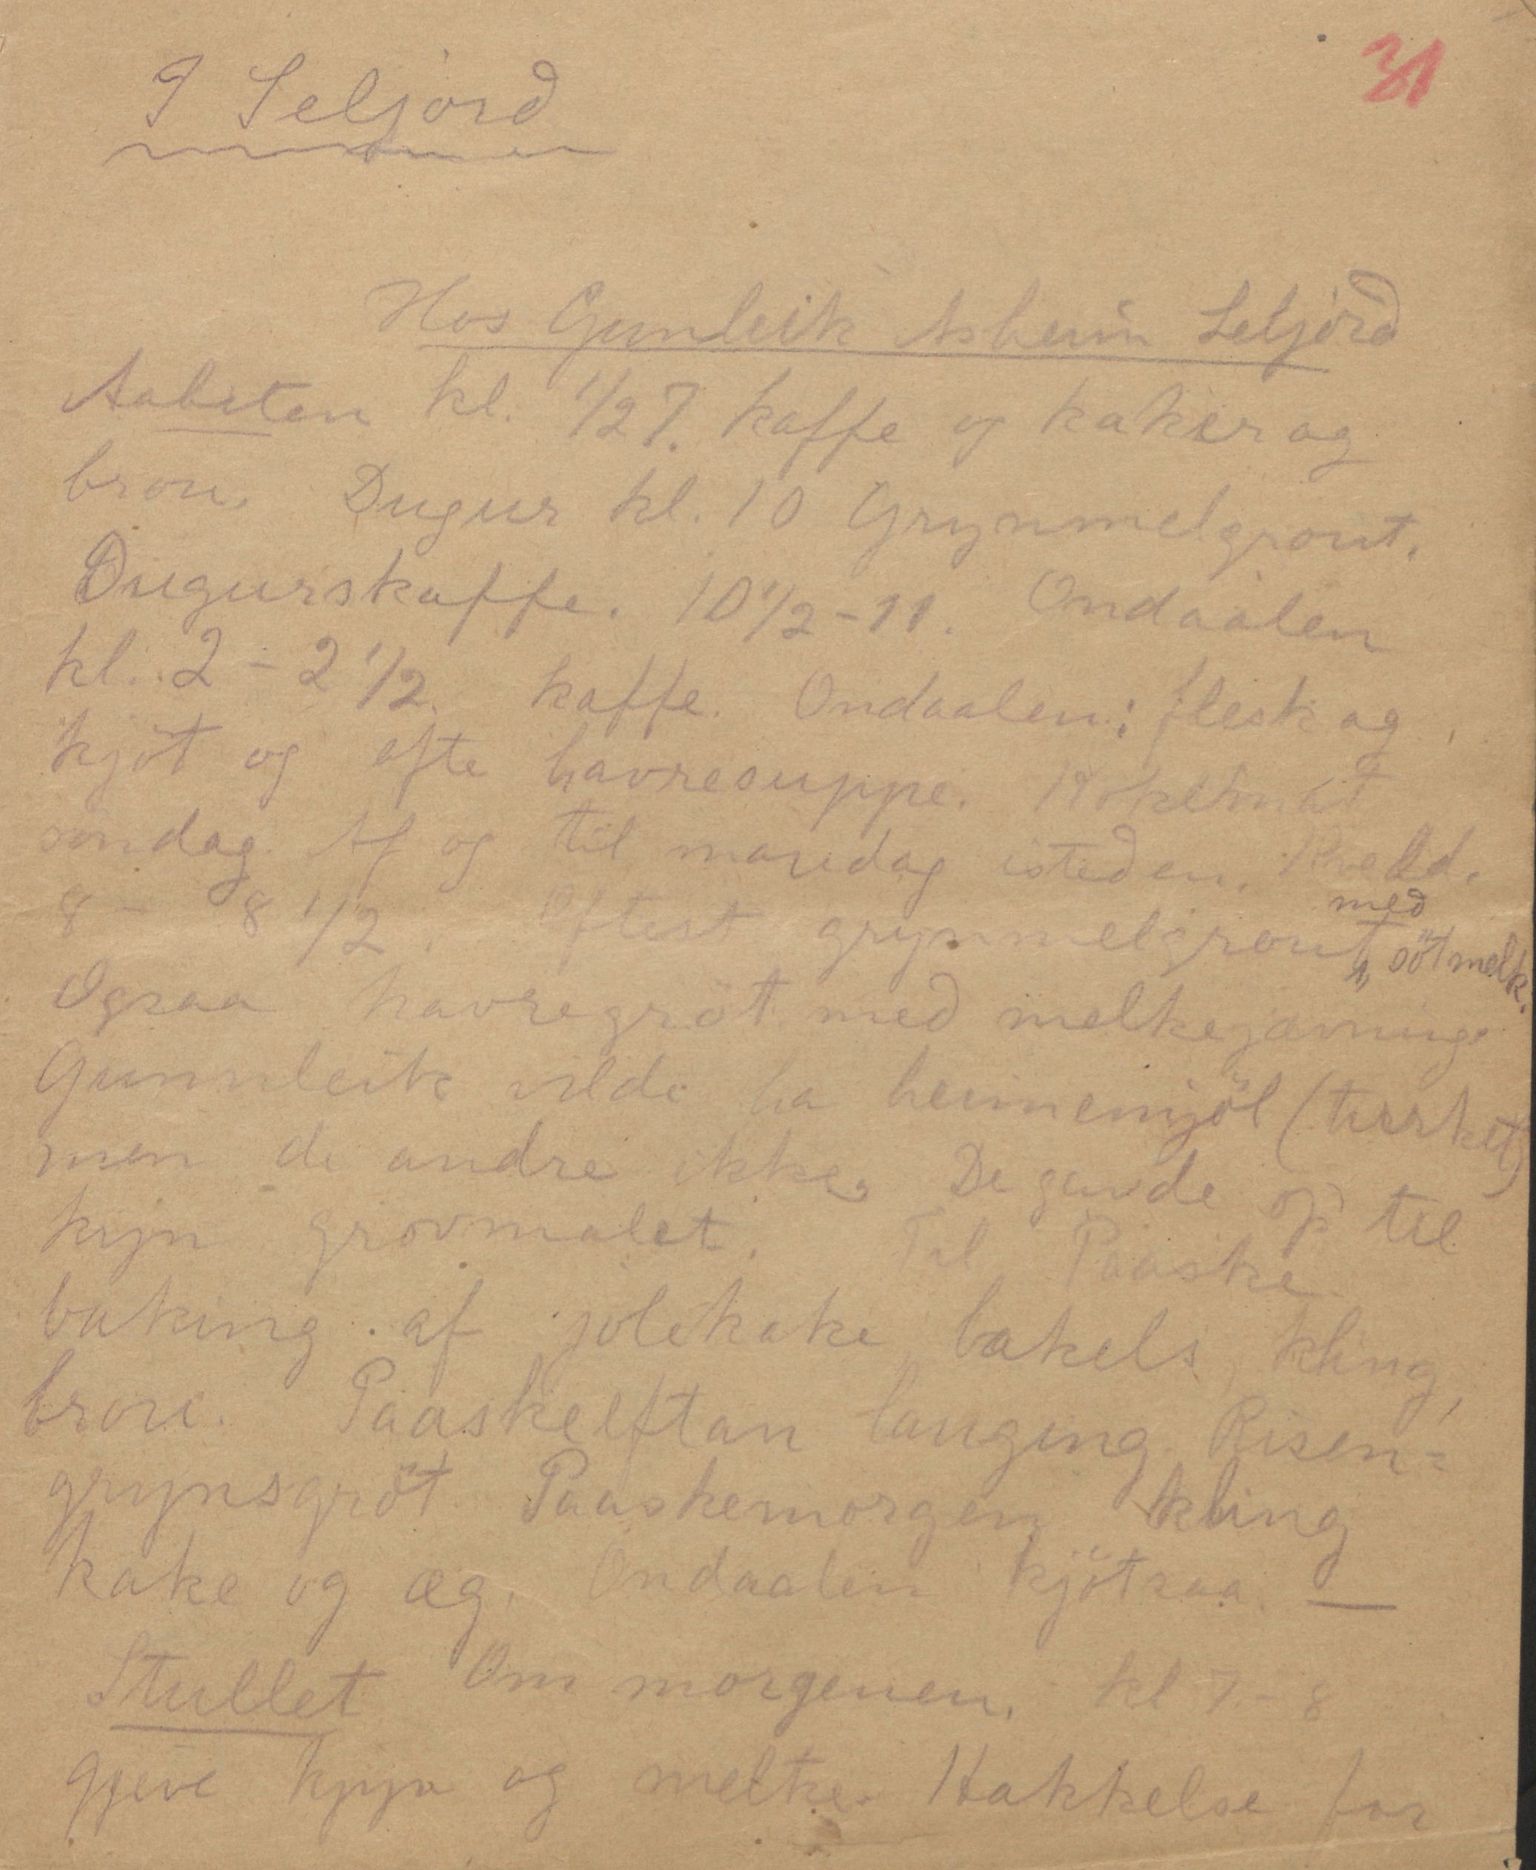 31
I Seljord
Hos Gunleik Asheim Seljord
Aabiten kl. 1/2 7. kaffe og kaker og
brou. Dugur kl. 10 Grynmelgrout.
Dugurskaffe. 10 1/2 - 11. Ondaalen
kl. 2 - 2 1/2. kaffe. Ondaalen: flesk og
kjöt og efte havresuppe. Kokelmat
söndag. Af og til mandag isteden. Kveld.
8 - 8 1/2. Oftest grynmelgrout med sötmelk.
Ogsaa havregröt med melkejævning.
Gunnleik vilde ha heimemjöl (turket)
men de andre ikke. De gavde op til
kyn grovmalet. Til Paaske
baking af jolekake, bakels, kling,
brou. Paaskeeftan lauging. Risen-
grynsgröt Paaskemorgen kling
kake og æg. Ondaalen kjötsaa. —
Stullet Om morgenen. kl 7 - 8
gjeve kyn og melke. Hakkelse for